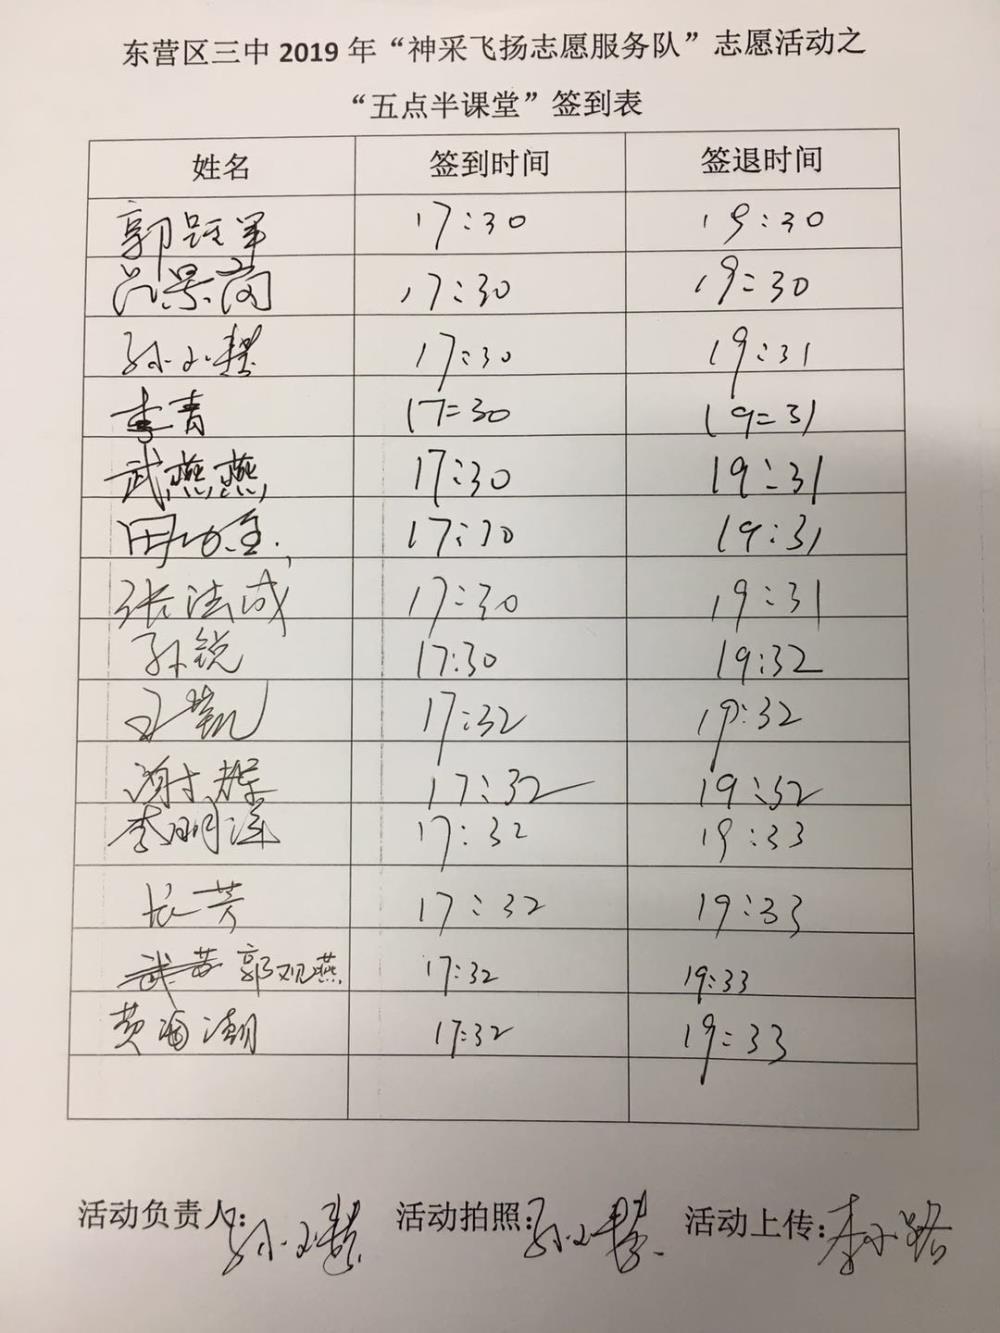 东营区三中 2019 年“神采飞扬志愿服务队”志愿活动之
“五点半课堂”签到表
姓名 签到时间 签退时间
郭 军 17:30 19:30
吕景 17:30 19:30
孙小慧 17:30 19:31
李青 17=30 19=31
武燕燕 17:30 19:31
田 17:30 19:31
张法成 17:30 19:31
孙锐 17:30 19:32
王凯 17:32 19:32
谢 17:32 19:32
李明 17:32 19:33
张芳 17:32 19:33
郭观燕 17:32 19:33
黄海潮 17:32 19:33
活动负责人:孙小慧 活动拍照:孙小慧 活动上传:李小路